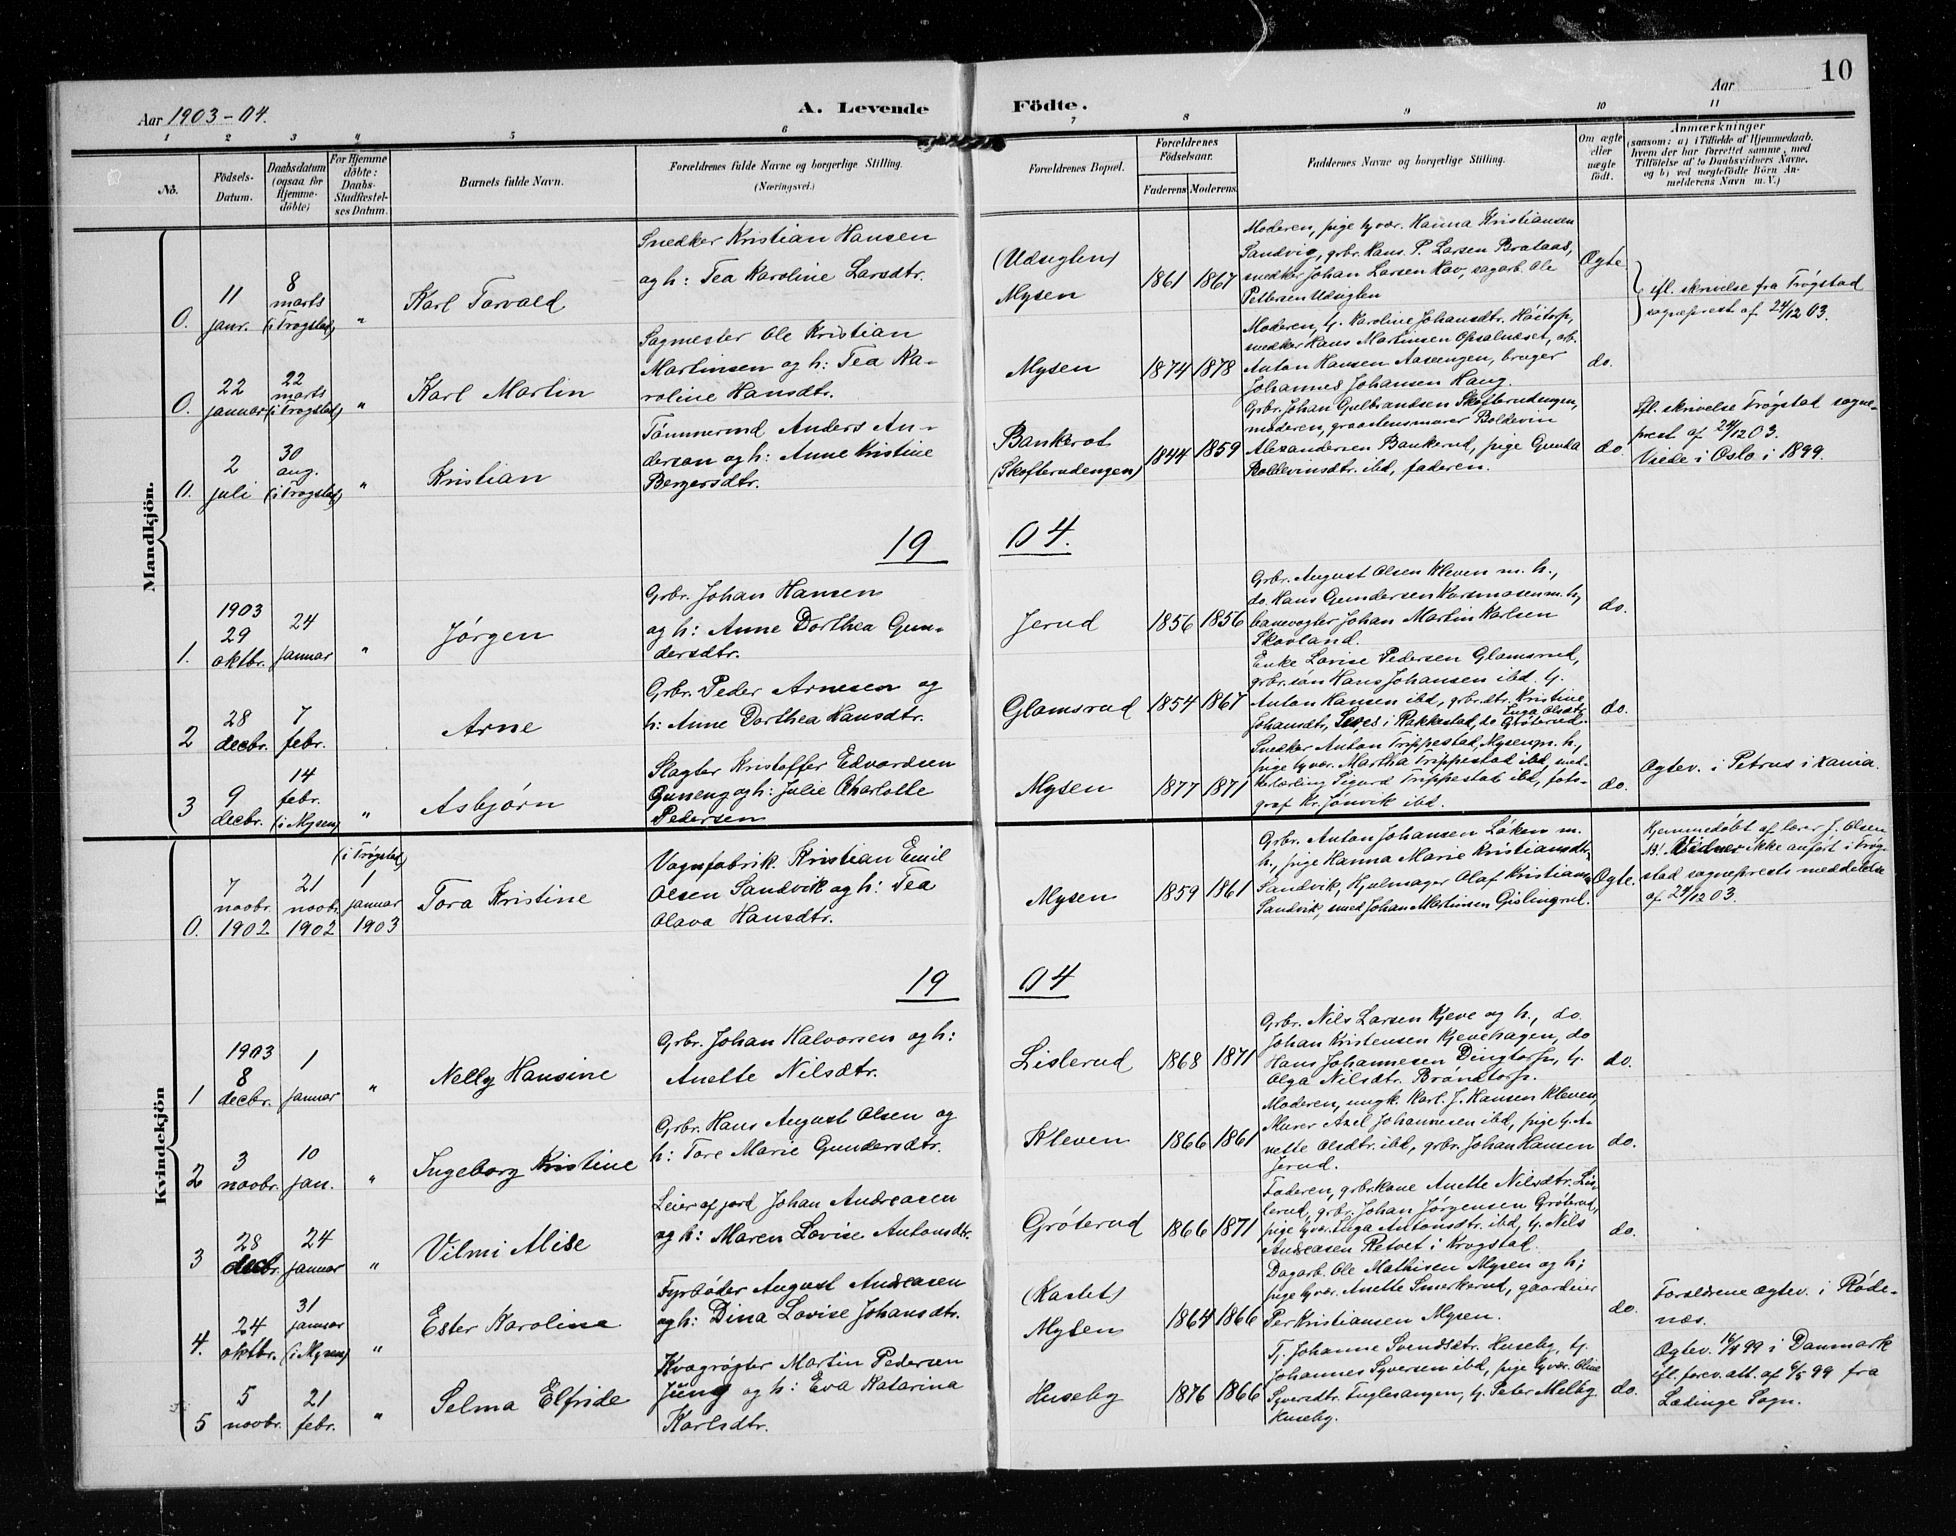 10
Aar 1903-04.
A. Levende Födte.
Aar
1 2 3 4 5 6 7 8 9 10 11
No.
Födsels-Datum.
Daabsdatum (ogsaa for Hjemme-döbte)
For Hjemme döbte: Daabs-Stadfæstel-ses Datum.
Barnets fulde Navn.
Forældrenes fulde Navne og borgerlige Stilling.
(Næringsvei.)
Forældrenes Bopæl.
Forældrenes Födselsaar.
Faderens. Moderens.
Faddernes Navne og borgerlige Stilling.
Om ægte eller uægte födt.
Anmærkninger
(saasom: a) i Tilfælde af Hjemmedaab,
hvem der har forrettet samme, med
Tilföielse af to Daabsvidners Navne,
og b) ved uægtefödte Börn An-
melderens Navn m. V.)
Mandkjön.
0.
11
janr.
8
marts
(i Trøgstad)
"
Karl Torvald
Snedker Kristian Hansen
og h: Tea Karoline Larsdtr.
(Udsigten)
Mysen
1861
1867
Moderen, pige tyvær. Hanna Kristiansen
Sandvig, grbr. Hans P. Larsen Brataas,
snedker Johan Larsen Kav, sagarb. Ole
Pettersen Udsigten
Ægte
ifl. skrivelse fra Trøgstad
sogneprest af 24/12 03.
0.
22
januar
22
marts
(i Trøgstad)
"
Karl Martin
Sagmester Ole Kristian
Martinsen og h: Tea Ka-
roline Hansdtr.
Mysen
1874
1878
Moderen, Karoline Johansdtr. Høitorp,
snedker Hans Martinsen Opsalnæset, arb.
Anton Hansen Aasengen, bruger
Johannes Johansen Haug.
do.
0.
2
juli
30
aug.
(i Trøgstad)
"
Kristian
Tømmermd Anders An-
dersen og h: Anne Kristine
Bergersdtr.
Bankerot
(Skofterudengen)
1844
1859
Grbr. Johan Gulbrandsen Skofterudengen,
moderen, graastensmurer Boldevin
Alexandersen Bankerud, pige Gunda
Boldevinsdtr. ibd, faderen.
do.
Ifl. skrivelse Trøgstad sogne-
prest af 24/12 03.
Viede i Oslo i 1899.
19 04.
1.
1903
29
oktbr.
24
januar
"
Jørgen
Grbr. Johan Hansen
og h: Anne Dorthea Gun-
dersdtr.
Jerud
1856
1856
Grbr. August Olsen Kleven m. h.,
do. Hans Gundersen Korsmosen m. h,
banevogter Johan Martin Karlsen
Skovland.
do.
2
28
decbr.
7
febr.
Arne
Grbr. Peder Arnesen og
h: Anne Dorthea Hansdtr.
Glamsrud
1854
1867
Enke Lovise Pedersen Glamsrud,
grbr. søn Hans Johansen ibd. U.
Anton Hansen ibd, grbr.dtr. Kristine
Johansdtr, i Rakkestad, do Inga Olsdtr. Grøterud.
do.
3
9
decbr.
14
febr.
(i Mysen)
"
Asbjørn
Slagter Kristoffer Edvardsen
Guneng og h: Julie Charlotte
Pedersen
Mysen
1877
1871
Snedker Anton Trippestad, Mysen m. h.,
pige tyvær. Martha Trippestad ibd, sned-
kerlærling Sigurd Trippestad ibd, foto-
graf Kr. Jonvik ibd.
do.
Ægtev. i Petrus i Xania.
Kvindekjön
0.
7
novbr.
1902
21
novbr.
1902
(i Trøgstad)
1
januar
1903
Tora Kristine
Vognfabrik. Kristian Emil
Olsen Sandvik og h: Tea
Olava Hansdtr.
Mysen
1859
1861
Grbr. Anton Johansen Løken m.
h., pige Hanna Marie Kristiansdtr.
Sandvik, Hjulmager Olaf Kristians
Sandvik, smed Johan Martinsen Gislingrud.
Ægte.
Hjemmedøbt af lærer J. Olsen
N! Vidner ikke anført i Trøg-
stad sogneprests meddelelse
af 24/12 03.
19 04
1
1903
8
decbr.
1
januar
"
Nelly Hansine
Grbr. Johan Halvorsen og h:
Anette Nilsdtr.
Lislerud
1868
1871
Grbr. Nils Larsen Kjeve og h., do.
Johan Kristensen Kjevehagen, do
Hans Johannesen Dingtorp, U.
Olga Nilsdtr. Brøndtorp.
do.
2
3
novbr.
10
jan.
"
Ingeborg Kristine
Grbr. Hans August Olsen og
h: Tore Marie Gundersdtr.
Kleven
1866
1861
Moderen, ungk. Karl. J. Hansen Kleven,
Murer Axel Johannesen ibd, pige U. A-
nette Olsdtr. ibd, grbr. Johan Hansen
Jerud.
do.
3
28
decbr.
24
januar
"
Vilmi Alise
Leier af jord Johan Andreasen
og h: Maren Lovise Antonsdtr.
Grøterud
1866
1871
Faderen, grbr.kone Anette Nilsdtr. Lis-
lerud, grbr. Johan Jørgensen Grøterud,
pige tyvær. Inga Antonsdtr. ibd, U. Nils
Andreasen Retvet i Krogstad.
do.
4.
24
oktbr.
31
januar
(i Mysen)
"
Ester Karoline
Fyrbøder August Andreasen
og h: Dina Lovise Johansdtr.
(Kastet)
Mysen
1864
1866
Dagarb. Ole Mathisen Mysen og h;
pige tyvær. Anette Smerkerud, gaardeier
Per Kristiansen Mysen.
do.
Forældrene ægtev. i Røde-
næs.
5
5
novbr.
21
febr.
"
Selma Elfride
Kvægrøgter Martin Pedersen
Jung og h: Eva Katarina
Karlsdtr.
Huseby
1876
1866
Tj. Johanne Svendsdtr. Huseby, U.
Johannes Syversen ibd, pige tyvær. Oline
Syversdtr. Englerangen, U. Peter Melby
Huseby.
do.
Ægtev. 14/4 99 i Danmark
ifl. forev. att. af 9/5 99 fra
Lødinge Sogn.